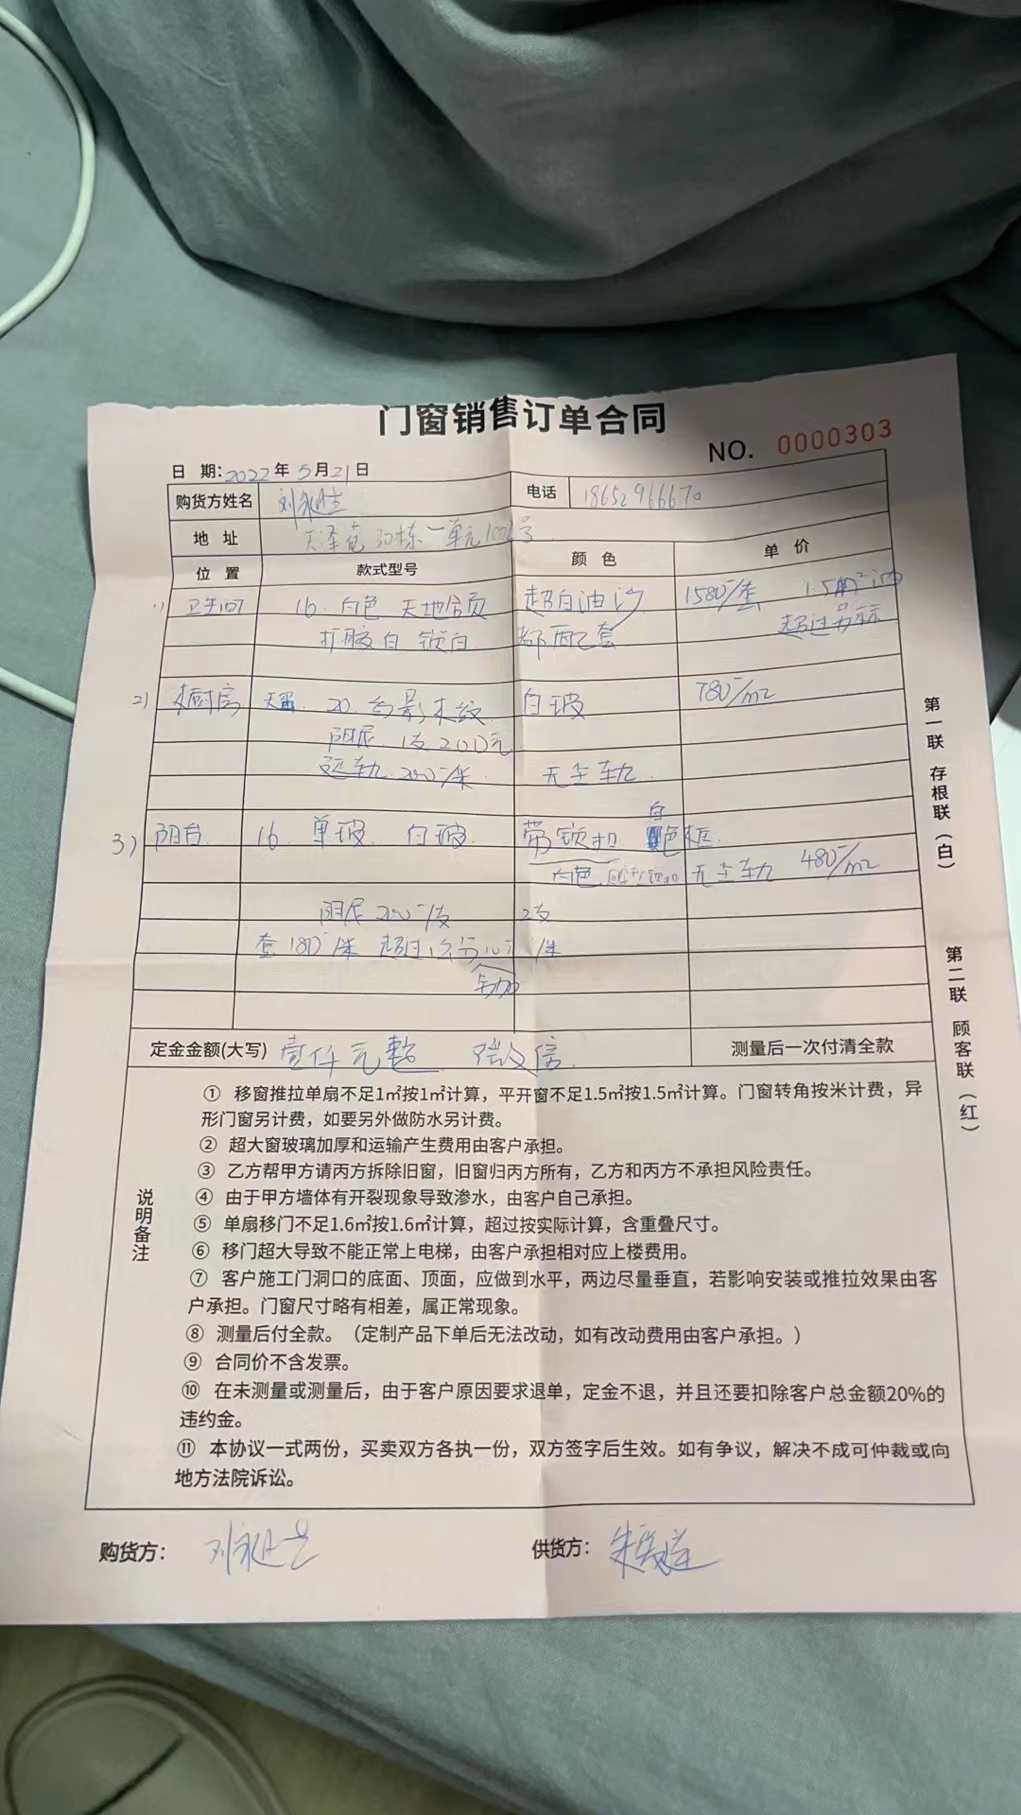 门窗销售订单合同
NO. 0000303
日 期:2022年5月21日
购货方姓名 电话
地 址
位 置 款式型号 颜 色 单 价
1) 卫生间 16. 白色 天地合页 超白油沙 1580/套 1.5m²
打胶白 锁白 都两套 超过另
2) 厨房 20. 木纹 白玻 780/m²
阻尼 1支200元
轨 200/米 无尘轨
3) 阳台 16 单玻 白玻 带锁扣 白 色框
白色 无尘轨 480/m²
阻尼 200/支 2支
套 180/米 超过 /米
定金金额(大写) 壹仟元整 测量后一次付清全款
说明备注
① 移窗推拉单扇不足1㎡按1㎡计算，平开窗不足1.5㎡按1.5㎡计算。门窗转角按米计费，异
形门窗另计费，如要另外做防水另计费。
② 超大窗玻璃加厚和运输产生费用由客户承担。
③ 乙方帮甲方请丙方拆除旧窗，旧窗归丙方所有，乙方和丙方不承担风险责任。
④ 由于甲方墙体有开裂现象导致渗水，由客户自己承担。
⑤ 单扇移门不足1.6㎡按1.6㎡计算，超过按实际计算，含重叠尺寸。
⑥ 移门超大导致不能正常上电梯，由客户承担相对应上楼费用。
⑦ 客户施工门洞口的底面、顶面，应做到水平，两边尽量垂直，若影响安装或推拉效果由客
户承担。门窗尺寸略有相差，属正常现象。
⑧ 测量后付全款。（定制产品下单后无法改动，如有改动费用由客户承担。）
⑨ 合同价不含发票。
⑩ 在未测量或测量后，由于客户原因要求退单，定金不退，并且还要扣除客户总金额20%的
违约金。
⑪ 本协议一式两份，买卖双方各执一份，双方签字后生效。如有争议，解决不成可仲裁或向
地方法院诉讼。
购货方： 供货方：
第一联 存根联（白）
第二联 顾客联（红）